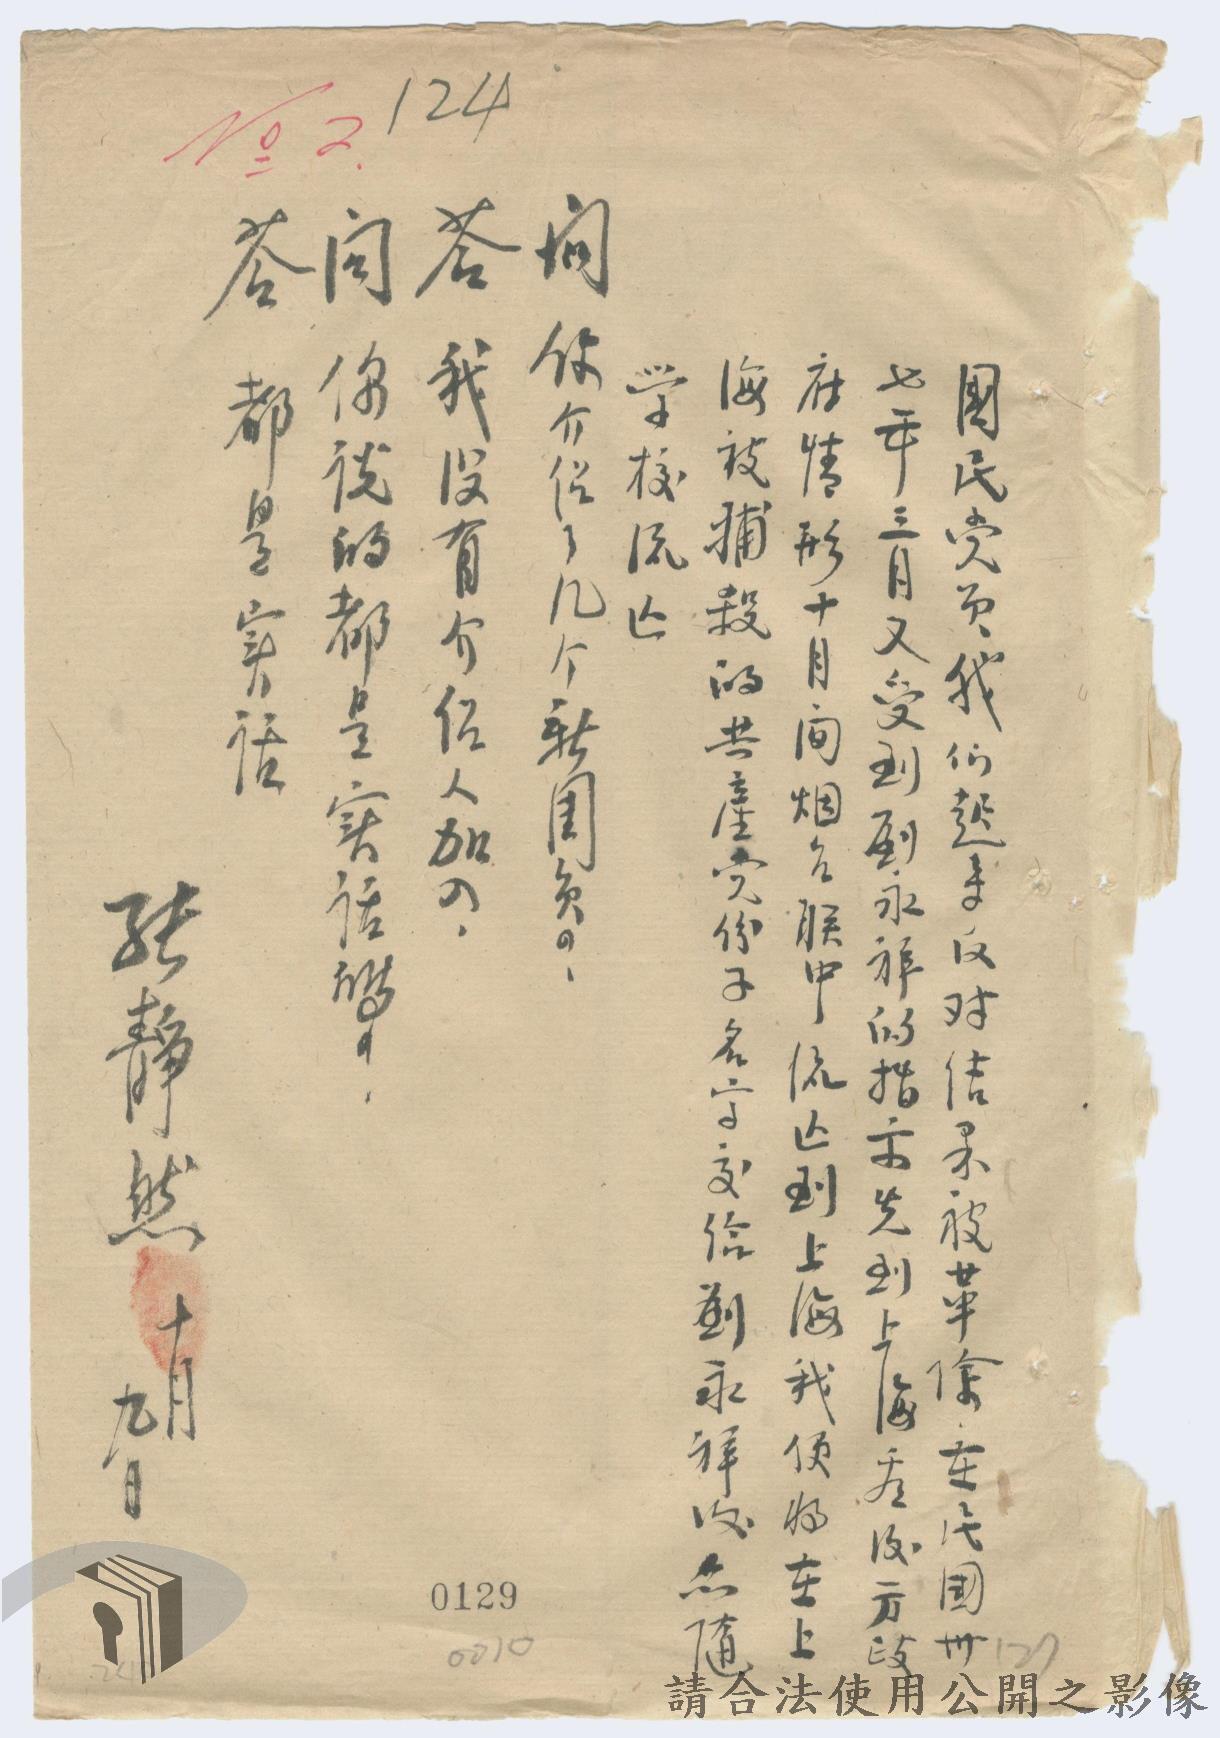 124
No 2.
國民党员,我们起来反对结果被革除在民国卅
七年三月又受到刘永祥的指示先到上海看後方政
府情形十月间烟台联中流亡到上海我便将在上
海被捕殺的共產党份子名字交给劉永祥後亦随
学校流亡
问 你介绍了几个新团员の、
答 我没有介绍人加の、
问 你说的都是实话吗の、
答 都是实话
张靜然
十月
九日
0129
0010
127
請合法使用公開之影像